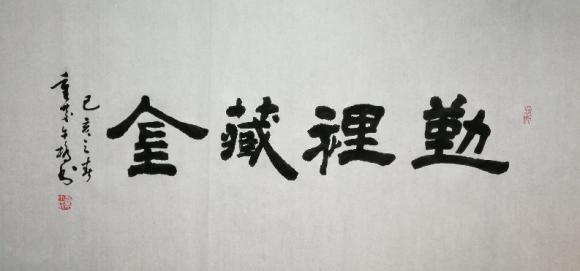 勤裡藏金
己亥之春